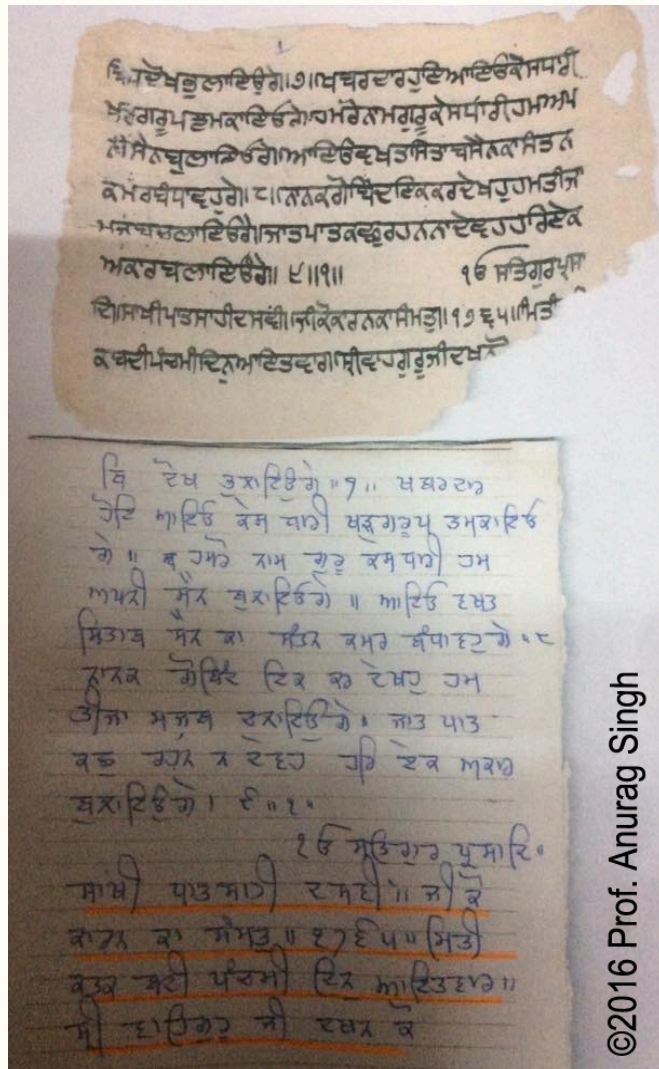 ਦੋਖ ਭੁਲਾਇਉਗੇ॥੭॥ਖਬਰਦਾਰਹੁਇਆਇਓਕੇਸਧਾਰੀ
ਖੜਗਰੂਪਣਮਕਾਇਓਗੇ॥ਹਮਰੇਨਾਮਗੁਰੂਕੇਸਧਾਰੀਹਮਆਪ
ਨੀਸੈਨਬੁਲਾਇਓਗੇ॥ਆਇਓਵਖਤਸਿਤਾਬਸੈਨਕਾਸੰਤਨ
ਕਮਰਬੰਧਾਵਹੁਗੇ॥੮॥ਨਾਨਕਗੋਬਿੰਦਇਕਕਰਦੇਖਹੁਹਮਤੀਜਾ
ਮਜਬਚਲਾਇਓਗੇ॥ਜਾਤਪਾਤਕਛੁਰਹਨਨਾਦੇਵਹਹਰਿਏਕ
ਅਕਾਰਬੁਲਾਇਓਗੇ॥੯॥੧॥ ੴ ਸਤਿਗੁਰਪ੍ਰਸਾ
ਦਿ॥ਸਾਖੀਪਾਤਸਾਹੀਦਸਵੀ॥ਜੀਕੋਕਾਰਨਕਾਸੰਮਤੁ॥੧੭੬੫॥ਮਿਤੀ
ਕਬਦੀਪੰਚਮੀਦਿਨੁਆਇਤਵਾਰ॥ਸ੍ਰੀਵਾਹਗੁਰੂਜੀਦਖਨ
ਬਿ ਦੋਖ ਭੁਲਾਇਉਗੇ॥੭॥ ਖਬਰਦਾਰ
ਹੋਇ ਆਇਓ ਕੇਸ ਧਾਰੀ ਖੜਗਰੂਪ ਤਮਕਾਇਓ
ਗੇ॥ ਹਮਰੋ ਨਾਮ ਗੁਰੂ ਕੇਸਧਾਰੀ ਹਮ
ਅਪਨੀ ਸੈਨ ਬੁਲਾਇਓਗੇ॥ ਆਇਓ ਵਖਤ
ਸਿਤਾਬ ਸੈਨ ਕਾ ਸੰਤਨ ਕਮਰ ਬੰਧਾਵਹੁਗੇ॥੮
ਨਾਨਕ ਗੋਬਿੰਦ ਇਕ ਕਰ ਦੇਖਹੁ ਹਮ
ਤੀਜਾ ਮਜ਼ਬ ਚਲਾਇਉਗੇ। ਜਾਤ ਪਾਤ
ਕਛੁ ਰਹਨ ਨ ਦੇਵਹ ਹਰਿ ਏਕ ਅਕਾਰ
ਬੁਲਾਇਉਗੇ। ੯॥੧॥
ੴ ਸਤਿਗੁਰ ਪ੍ਰਸਾਦਿ॥
ਸਾਖੀ ਪਾਤਸਾਹੀ ਦਸਵੀ॥ ਜੀ ਕੋ
ਕਾਰਨ ਕਾ ਸੰਮਤੁ॥੧੭੬੫॥ ਮਿਤੀ
ਕਤਕ ਬਦੀ ਪੰਚਮੀ ਦਿਨੁ ਆਇਤਵਾਰ॥
ਸ੍ਰੀ ਵਾਹਿਗੁਰੂ ਜੀ ਦਖਨ ਕੋ
©2016 Prof. Anurag Singh